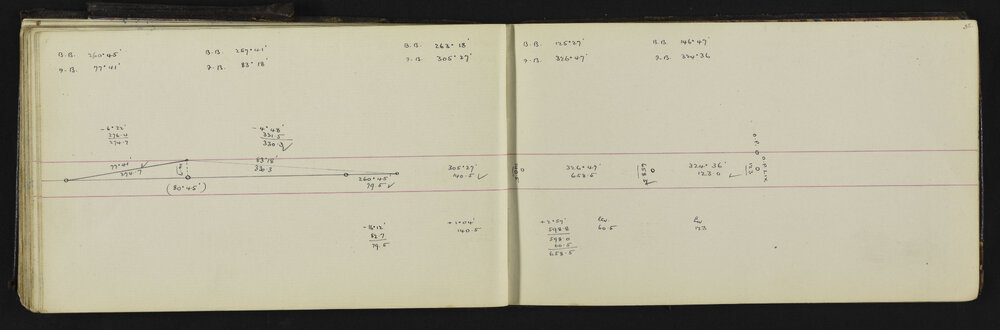 B.B. 260°45'
F.B. 77°41'
B.B. 257°41'
F.B. 83°18'
B.B. 263°18'
F.B. 305°27'
B.B. 125°27'
F.B. 326°47'
B.B. 146°47'
F.B. 324°36
-6°22'
276.4
274.7
-4°48'
331.5
330.3
77°41'
274.7
(80°45')
83°18'
330.3
260°45
79.5
305°27'
140.5
140.5
326°47'
658.5
658.5
324°36'
123.0
123
-16°12'
82.7
79.5
+1°04'
140.5
+2°57'
598.8
598.0
60.5
658.5
Lev.
60.5
Lev
123